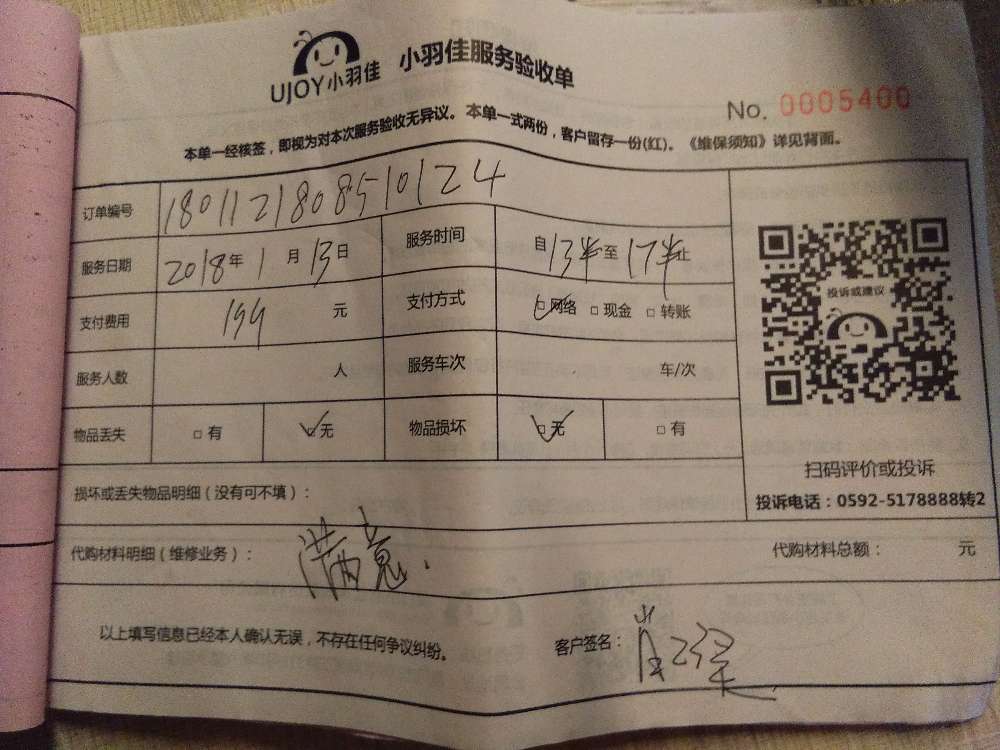 UJOY小羽佳 小羽佳服务验收单
No. 0005400
本单一经核签，即视为对本次服务验收无异议。本单一式两份，客户留存一份(红)。《维保须知》详见背面。
订单编号 1801121808510124
服务日期 2018年1月13日 服务时间 自13半至17半止
支付费用 199 元 支付方式 □网络 □现金 □转账
服务人数 人 服务车次 车/次
物品丢失 □有 □无 物品损坏 □无 □有
投诉或建议
扫码评价或投诉
投诉电话：0592-5178888转2
损坏或丢失物品明细（没有可不填）：
代购材料明细（维修业务）： 满意. 代购材料总额： 元
以上填写信息已经本人确认无误，不存在任何争议纠纷。 客户签名：